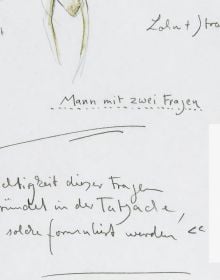 Mann mit zwei Fragen
chtigkeit dieser Fragen
ründet in der Tatsache,
solche formuliert werden <<